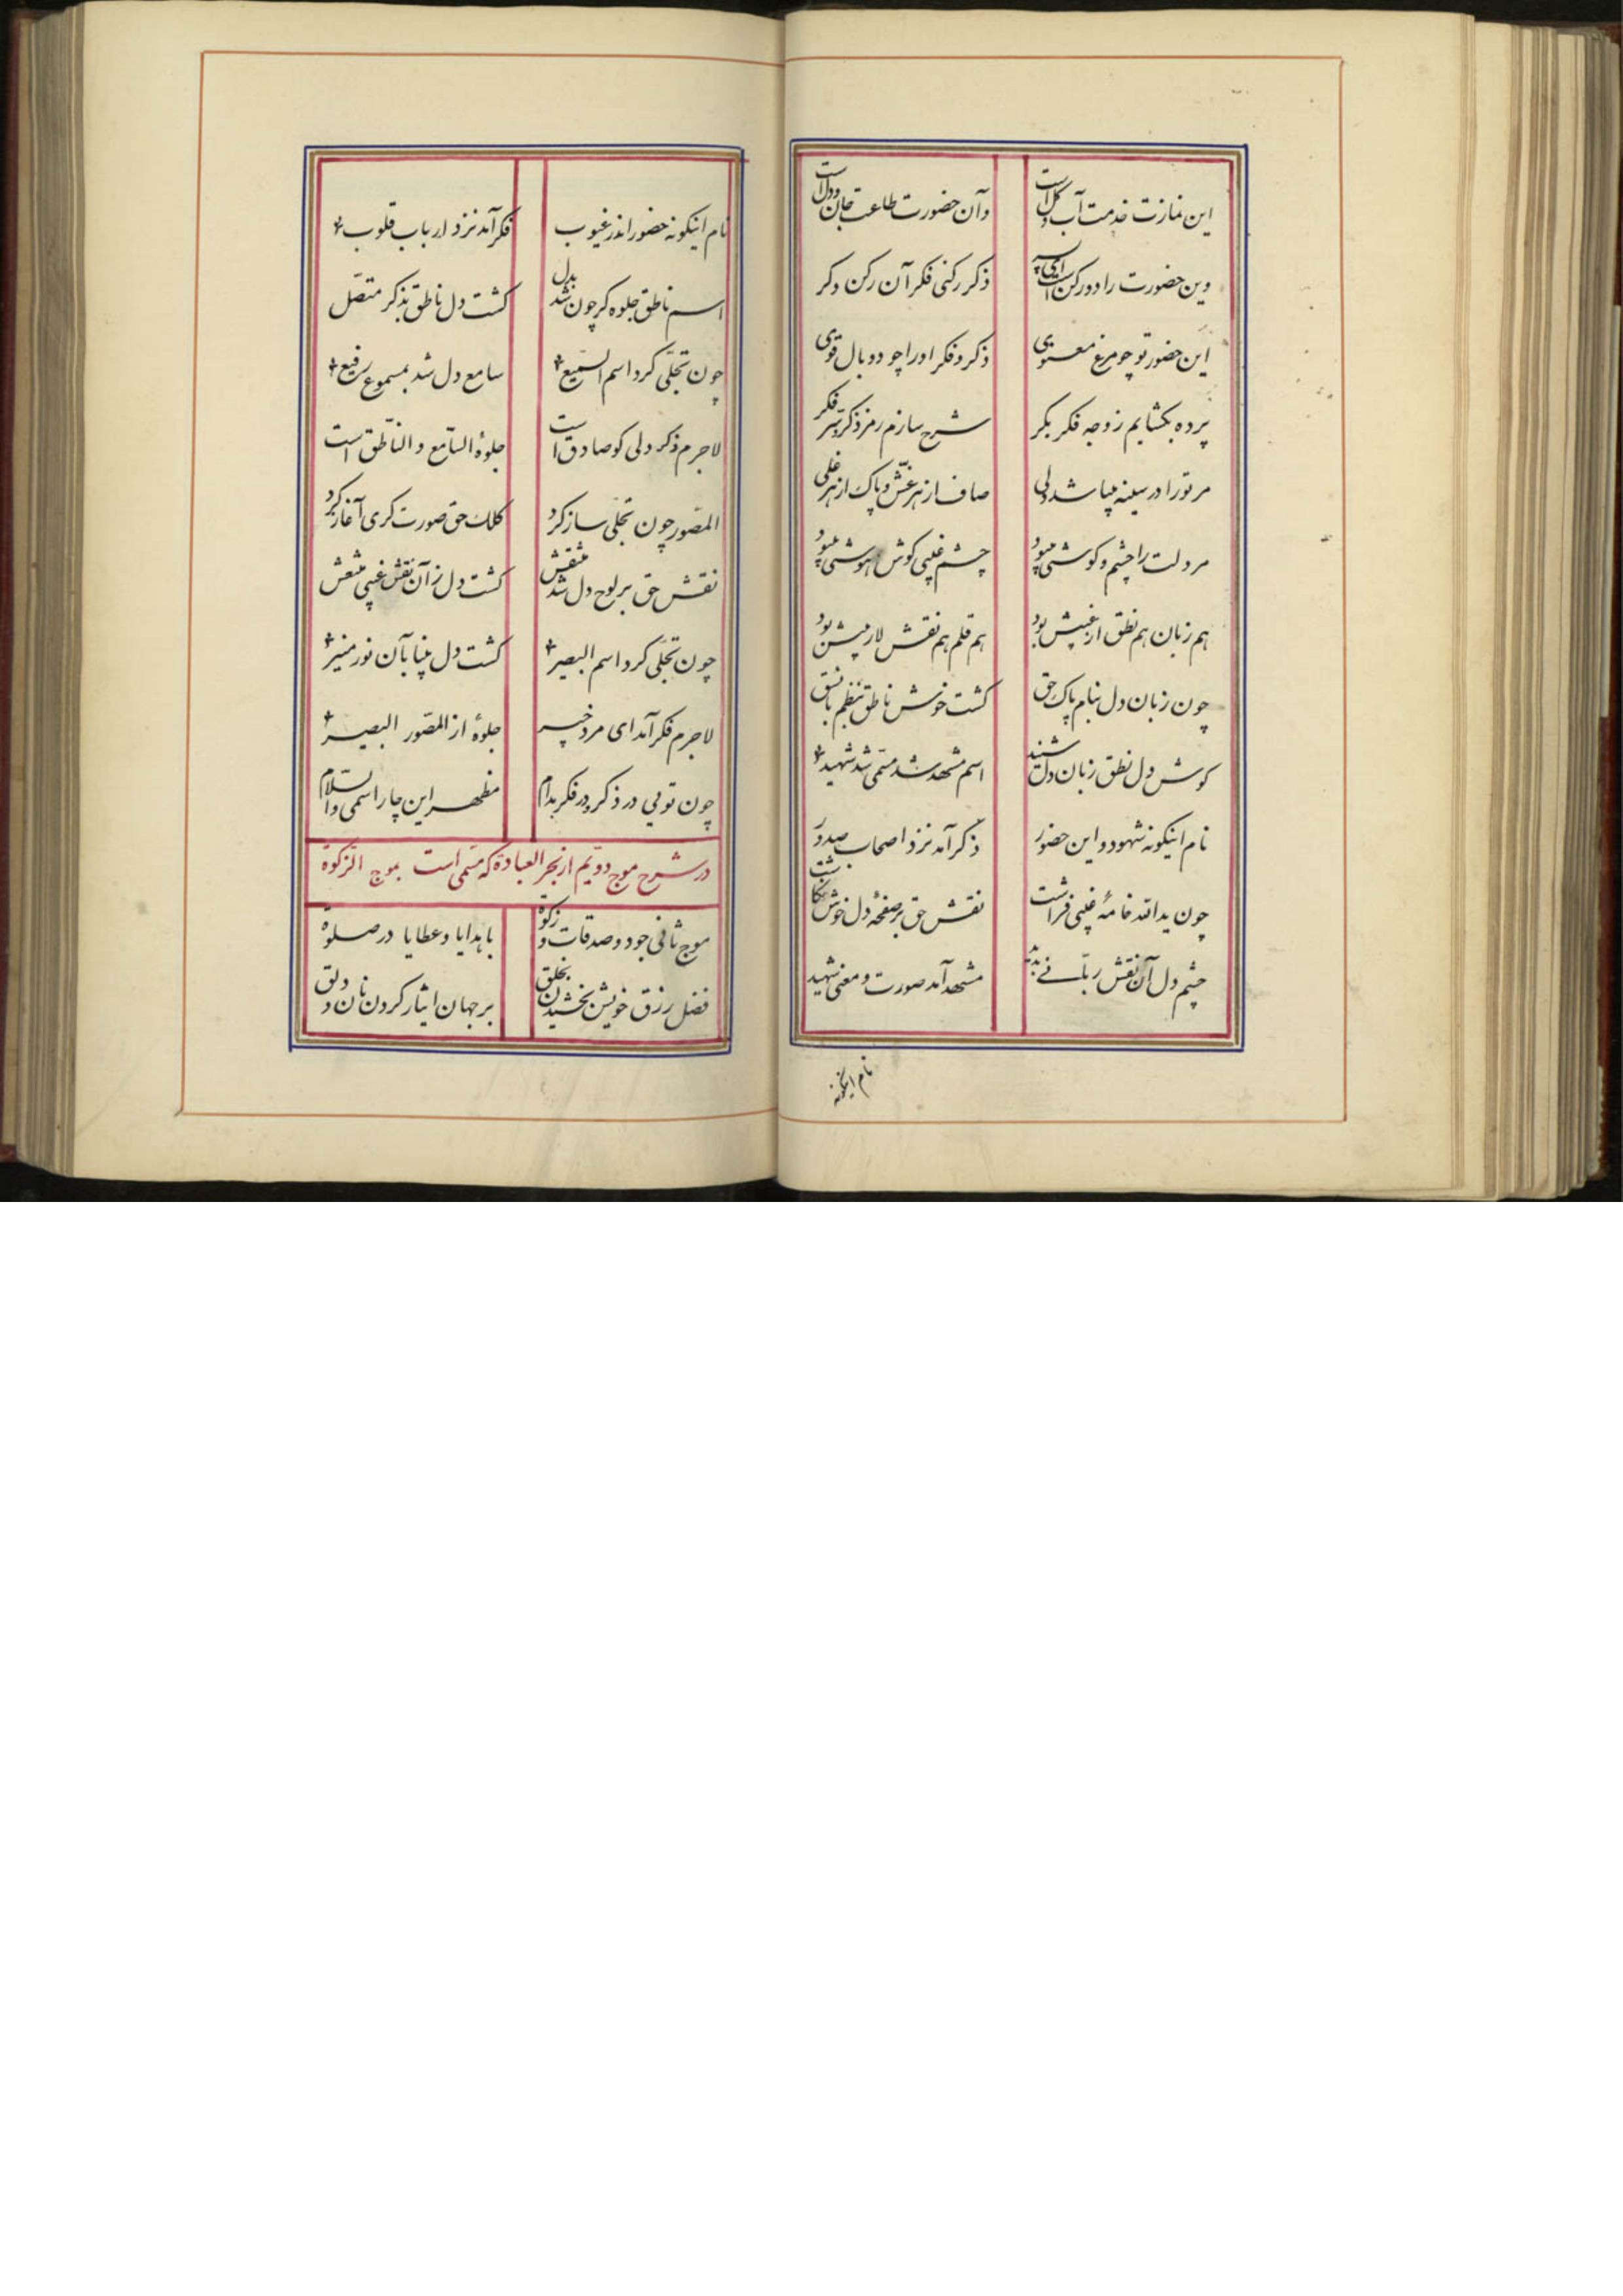 این نمازت خدمت آب و کل است
وآن حضورت طاعت جان و دل است
وین حضورت را دو رکن است ای پسر
ذکر رکنی فکر آن رکن دکر
این حضور تو چو مرغ معنوی
ذکر و فکر او را چو دو بال قوی
پرده بکشایم ز وجه فکر بکر
شرح سازم رمز ذکر و سرّ فکر
مر تو را در سینه میباشد دلی
صاف از هر غشّ و پاک از هر غلی
مر دلت را چشم و کوشی میبود
چشم غیبی کوش هوشی میبود
هم زبان هم نطق از غیبش بود
هم قلم هم نقش لاریبش بود
چون زبان دل بنام پاک حق
کشت خوش ناطق بنظم با نسق
کوش دل نطق زبان دل شنید
اسم مشهد شد مسمّی شد شهید
نام اینکونه شهود و این حضور
ذکر آمد نزد اصحاب صدور
چون یدالله خامهٔ غیبی فراشت
نقش حق بر صفحهٔ دل خوش نکاشت
چشم دل آن نقش ربّانی بدید
مشهد آمد صورت و معنی شهید
نام اینکونه
نام اینکونه حضور اندر غیوب
فکر آمد نزد ارباب قلوب
اسم ناطق جلوه کر چون شد بدل
کشت دل ناطق بذکر متّصل
چون تجلّی کرد اسم السّمیع
سامع دل شد بمسموع رفیع
لاجرم ذکر دلی کو صادق است
جلوهٔ السّامع و النّاطق است
المصّور چون تجلّی ساز کرد
کلک حق صورت کری آغاز کرد
نقش حق بر لوح دل شد منقش
کشت دل زآن نقش غیبی منتعش
چون تجلّی کرد اسم البصیر
کشت دل بینا بآن نور منیر
لاجرم فکر آمد ای مرد خبیر
جلوهٔ از المصّور البصیر
چون تویی در ذکر و در فکر بدام
مظهر این چار اسمی والسّلام
در شرح موج دوّیم از بحر العبادة که مسمّی است بموج الزکوة
موج ثانی جود و صدقات و زکوة
با هدایا و عطایا در صلوة
فضل رزق خویش بخشیدن بخلق
بر جهان ایثار کردن نان و دلق